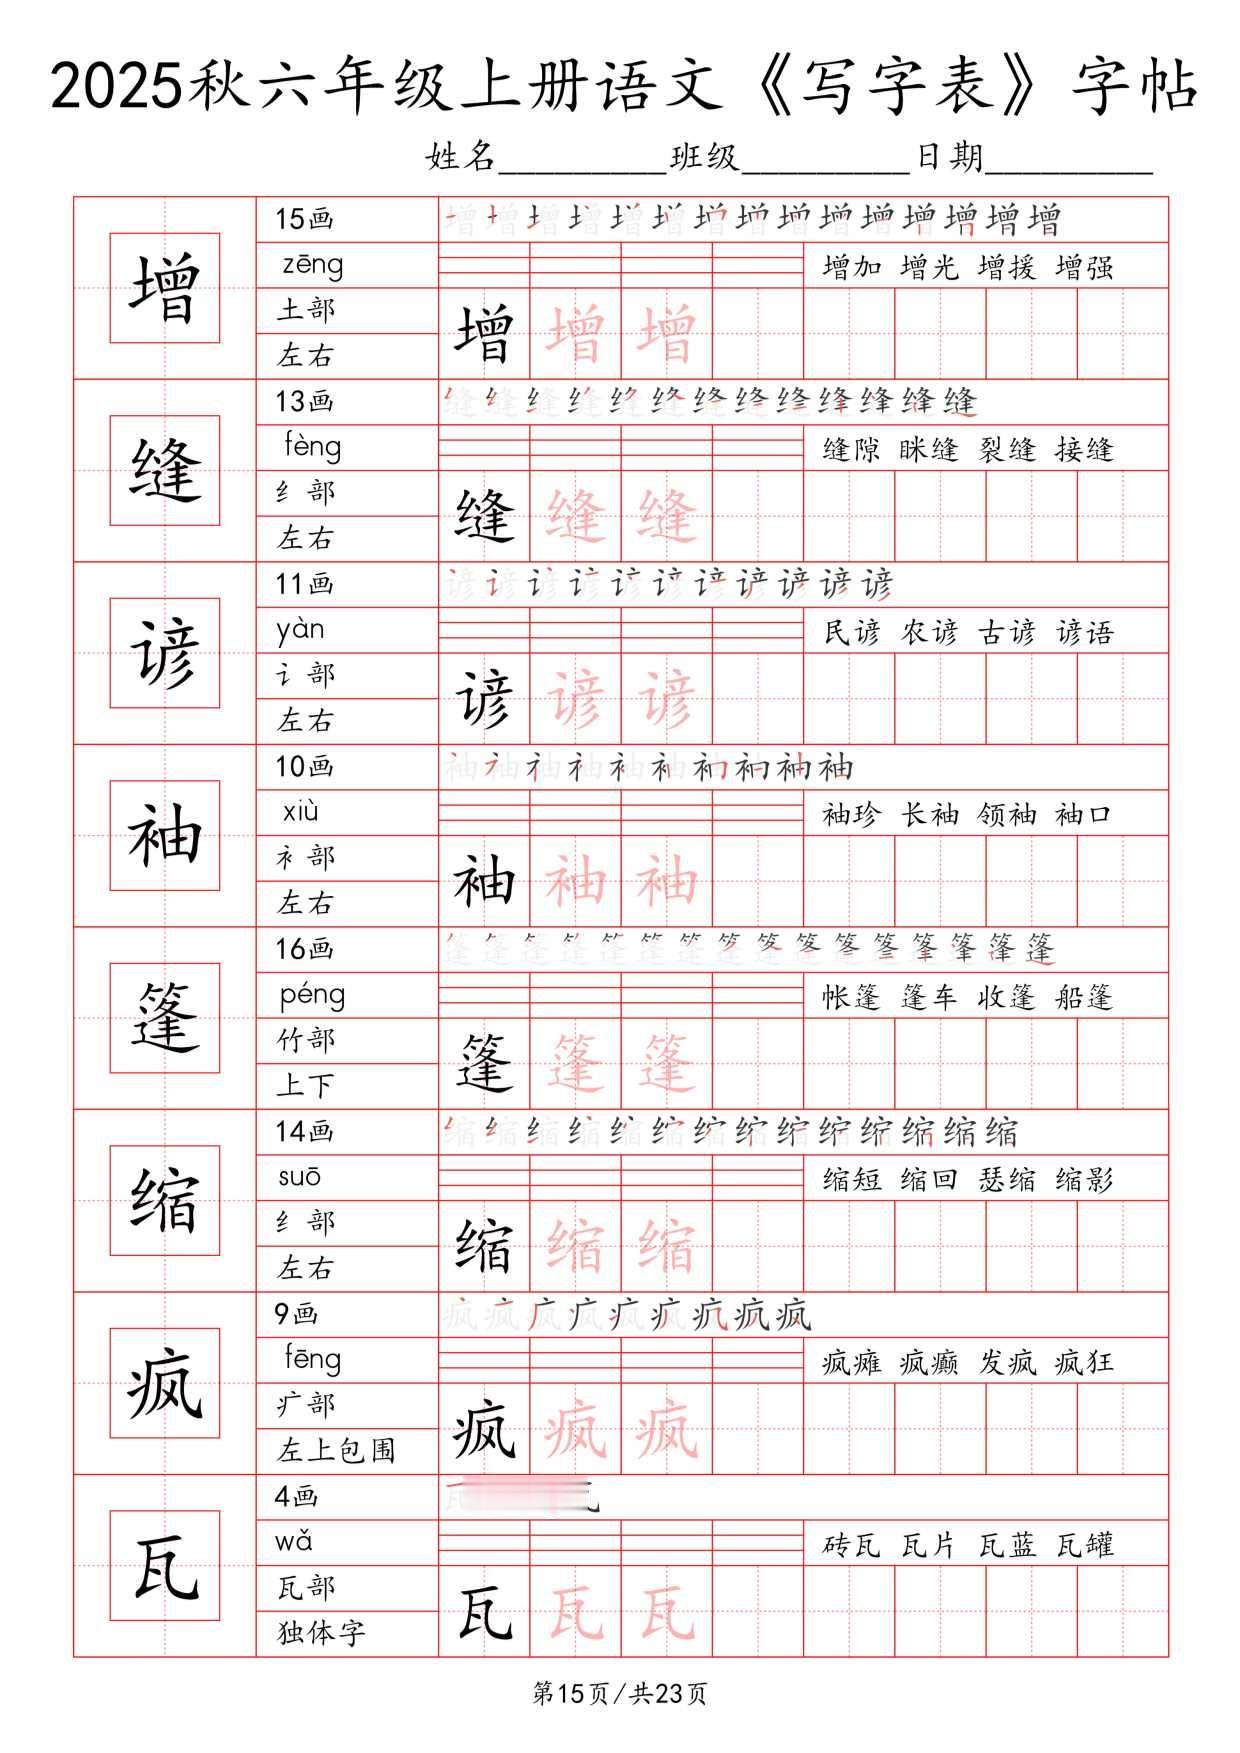 2025秋六年级上册语文《写字表》字帖
姓名_________班级_________日期_________
增
15画
增 增 增 增 增 增 增 增 增 增 增 增 增 增 增
zēng
增加 增光 增援 增强
土部
左右
增 增 增
缝
13画
缝 缝 缝 缝 缝 缝 缝 缝 缝 缝 缝 缝 缝
fèng
缝隙 眯缝 裂缝 接缝
纟部
左右
缝 缝 缝
谚
11画
谚 谚 谚 谚 谚 谚 谚 谚 谚 谚 谚
yàn
民谚 农谚 古谚 谚语
讠部
左右
谚 谚 谚
袖
10画
袖 袖 袖 袖 袖 袖 袖 袖 袖 袖
xiù
袖珍 长袖 领袖 袖口
衤部
左右
袖 袖 袖
篷
16画
篷 篷 篷 篷 篷 篷 篷 篷 篷 篷 篷 篷 篷 篷 篷 篷
péng
帐篷 篷车 收篷 船篷
竹部
上下
篷 篷 篷
缩
14画
缩 缩 缩 缩 缩 缩 缩 缩 缩 缩 缩 缩 缩 缩
suō
缩短 缩回 瑟缩 缩影
纟部
左右
缩 缩 缩
疯
9画
疯 疯 疯 疯 疯 疯 疯 疯 疯
fēng
疯瘫 疯癫 发疯 疯狂
疒部
左上包围
疯 疯 疯
瓦
4画
wǎ
砖瓦 瓦片 瓦蓝 瓦罐
瓦部
独体字
瓦 瓦 瓦
第15页/共23页